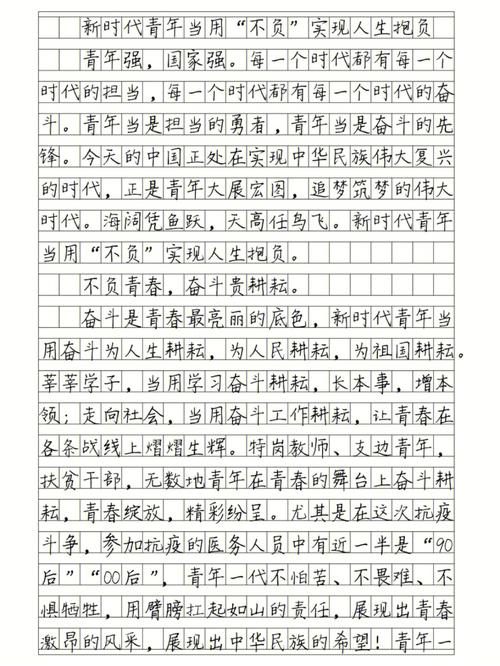 新时代青年当用“不负”实现人生抱负
青年强，国家强。每一个时代都有每一个
时代的担当，每一个时代都有每一个时代的奋
斗。青年当是担当的勇者，青年当是奋斗的先
锋。今天的中国正处在实现中华民族伟大复兴
的时代，正是青年大展宏图，追梦筑梦的伟大
时代。海阔凭鱼跃，天高任鸟飞。新时代青年
当用“不负”实现人生抱负。
不负青春，奋斗贵耕耘。
奋斗是青春最亮丽的底色，新时代青年当
用奋斗为人生耕耘，为人民耕耘，为祖国耕耘。
莘莘学子，当用学习奋斗耕耘，长本事，增本
领；走向社会，当用奋斗工作耕耘，让青春在
各条战线上熠熠生辉。特岗教师、支边青年，
扶贫干部，无数地青年在青春的舞台上奋斗耕
耘，青春绽放，精彩纷呈。尤其是在这次抗疫
斗争，参加抗疫的医务人员中有近一半是“90
后”“00后”，青年一代不怕苦、不畏难、不
惧牺牲，用臂膀扛起如山的责任，展现出青春
激昂的风采，展现出中华民族的希望！青年一